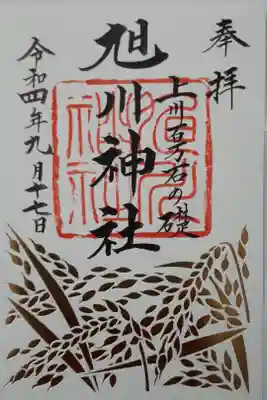 奉拝
上川百万石の礎
旭川神社
令和四年九月十七日